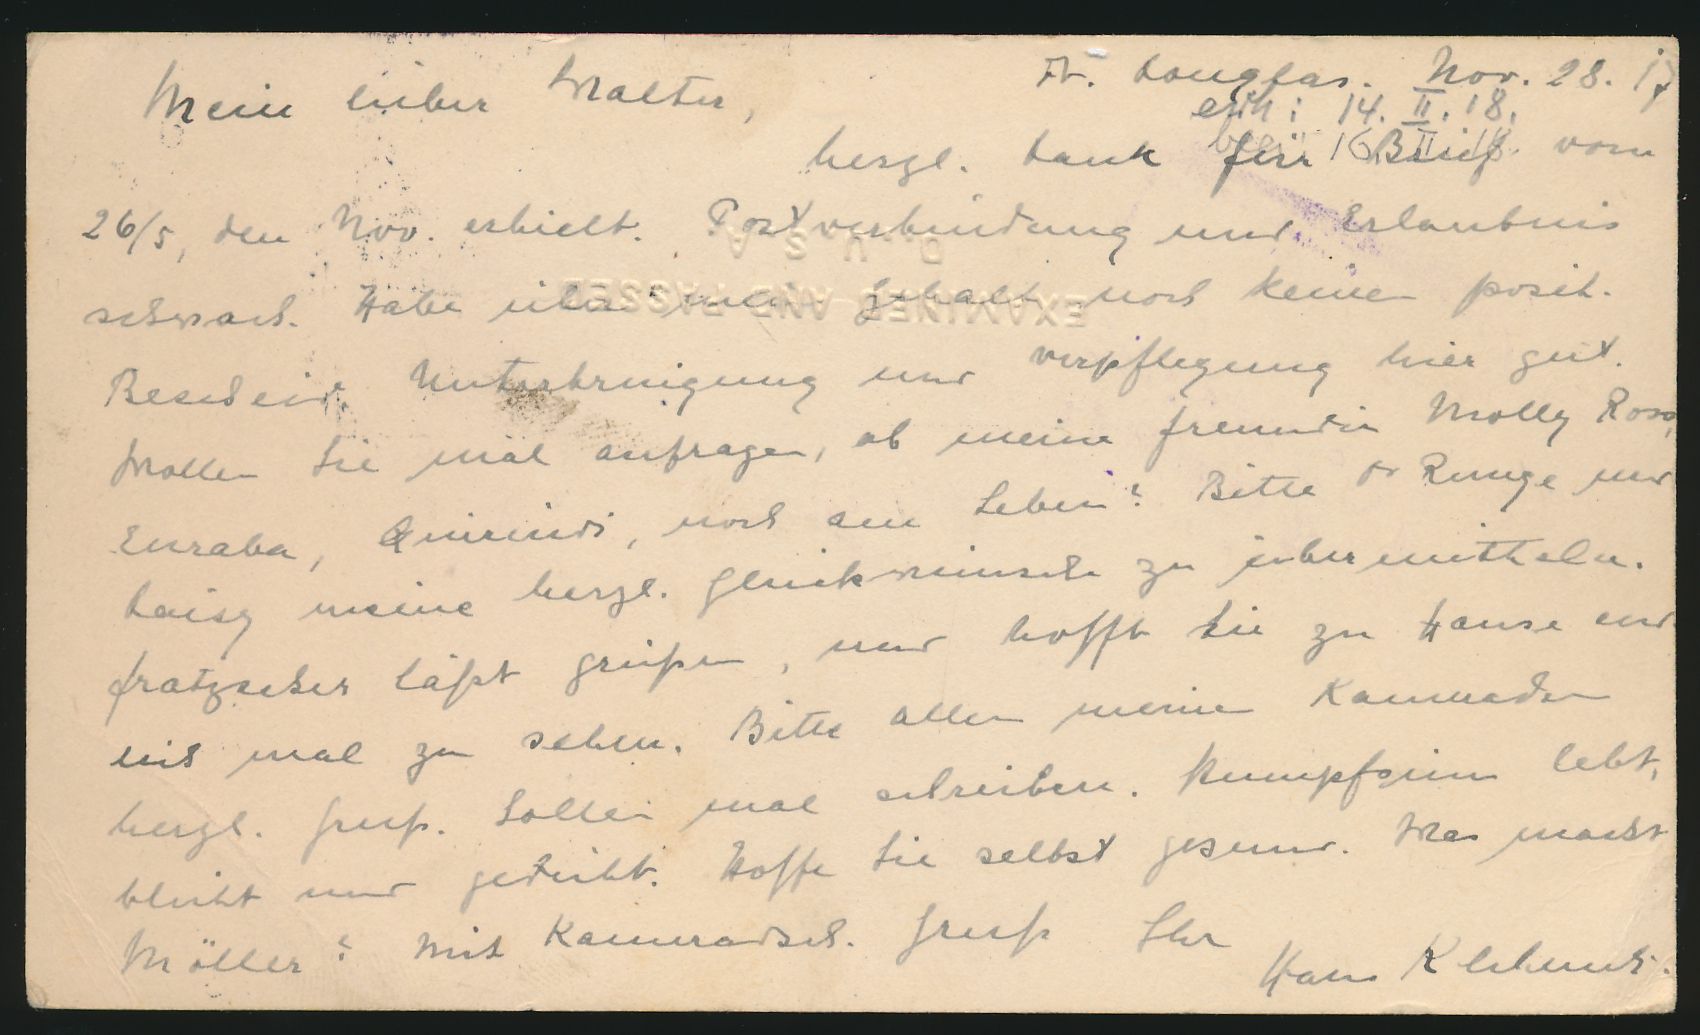 Ft. Douglas. Nov. 28. 17
Mein lieber Walter,
erh: 14. II. 18.
16. II. 18.
herzl. Dank für Brief vom
26/5, den Nov. erhielt. Postverbindung und Erlaubnis
D. U.S.A.
schwach. Habe über mein Gehalt noch keinen posit.
EXAMINED AND PASSED
Bescheid. Unterbringung und Verpflegung hier gut.
Wollen Sie mal anfragen, ob meine Freundin Molly Ross,
Euraba, Quirindi, noch am Leben? Bitte Dr Runge und
Daisy meine herzl. Glückwünsche zu übermitteln.
Fratzscher läßt grüßen, und hofft Sie zu Hause und
mal zu sehen. Bitte allen meinen Kameraden
herzl. Gruß. Sollen mal schreiben. lebt,
blüht und gedeiht. Hoffe Sie selbst gesund. Was macht
Möller? Mit Kameradsch. Gruß Ihr
Hans